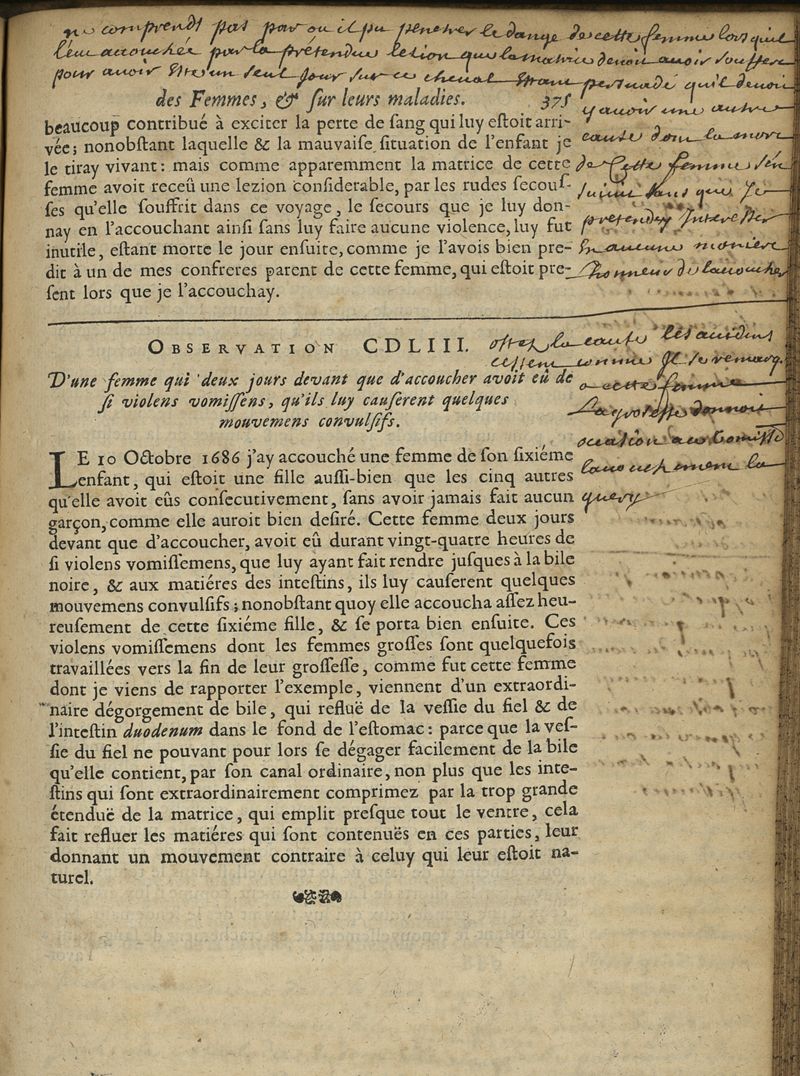 ne comprends pas par ou il pu penetrer le danger de cette femme lors quil
l'eut accouchée par la prétendue lezion que la matrice devoit avoir souffert
pour avoir un seul jour sur ce cheval estant persuadé qu'il devoit
y avoir une autre
cause dont la mort
de cette femme s'en
suivit sans que je
prétendes interesser
en aucune maniere
l'honneur de
des Femmes, & ſur leurs maladies. 375
beaucoup contribué à exciter la perte de ſang qui luy eſtoit arri-
vée; nonobſtant laquelle & la mauvaiſe ſituation de l'enfant je
le tiray vivant: mais comme apparemment la matrice de cette
femme avoit receû une lezion conſiderable, par les rudes ſecouſ-
ſes qu'elle ſouffrit dans ce voyage, le ſecours que je luy don-
nay en l'accouchant ainſi ſans luy faire aucune violence, luy fut
inutile, eſtant morte le jour enſuite, comme je l'avois bien pre-
dit à un de mes confreres parent de cette femme, qui eſtoit pre-
ſent lors que je l'accouchay.
OBSERVATION CDLIII.
D'une femme qui deux jours devant que d'accoucher avoit eû de
ſi violens vomiſſens, qu'ils luy cauſerent quelques
mouvemens convulſifs.
ostez la cause les accidens
cessent comme
a cette femme
la grossesse donnoit
occation
LE 10 Octobre 1686 j'ay accouché une femme de ſon ſixiéme
enfant, qui eſtoit une fille auſſi-bien que les cinq autres
qu'elle avoit eûs conſecutivement, ſans avoir jamais fait aucun
garçon, comme elle auroit bien deſiré. Cette femme deux jours
devant que d'accoucher, avoit eû durant vingt-quatre heures de
ſi violens vomiſſemens, que luy ayant fait rendre juſques à la bile
noire, & aux matiéres des inteſtins, ils luy cauſerent quelques
mouvemens convulſifs; nonobſtant quoy elle accoucha aſſez heu-
reuſement de cette ſixiéme fille, & ſe porta bien enſuite. Ces
violens vomiſſemens dont les femmes groſſes ſont quelquefois
travaillées vers la fin de leur groſſeſſe, comme fut cette femme
dont je viens de rapporter l'exemple, viennent d'un extraordi-
naire dégorgement de bile, qui refluë de la veſſie du fiel & de
l'inteſtin duodenum dans le fond de l'eſtomac: parce que la veſ-
ſie du fiel ne pouvant pour lors ſe dégager facilement de la bile
qu'elle contient, par ſon canal ordinaire, non plus que les inte-
ſtins qui ſont extraordinairement comprimez par la trop grande
étenduë de la matrice, qui emplit preſque tout le ventre, cela
fait refluer les matiéres qui ſont contenuës en ces parties, leur
donnant un mouvement contraire à celuy qui leur eſtoit na-
turel.